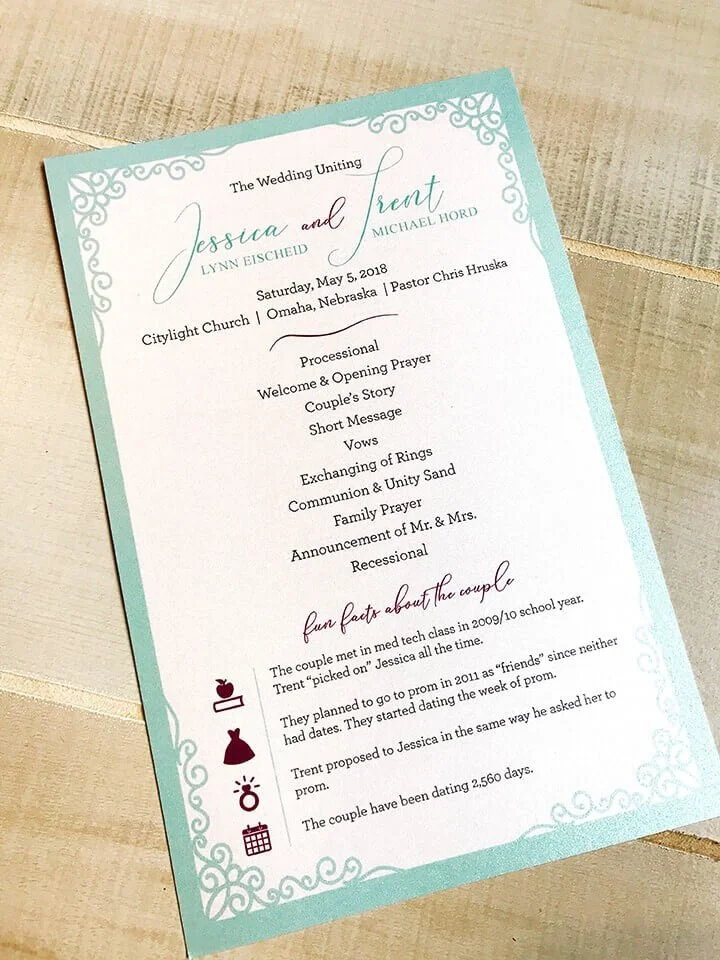 The Wedding Uniting
Jessica and Trent
LYNN EISCHEID MICHAEL HORD
Saturday, May 5, 2018
Citylight Church | Omaha, Nebraska | Pastor Chris Hruska
Processional
Welcome & Opening Prayer
Couple's Story
Short Message
Vows
Exchanging of Rings
Communion & Unity Sand
Family Prayer
Announcement of Mr. & Mrs.
Recessional
fun facts about the couple
The couple met in med tech class in 2009/10 school year.
Trent "picked on" Jessica all the time.
They planned to go to prom in 2011 as "friends" since neither
had dates. They started dating the week of prom.
Trent proposed to Jessica in the same way he asked her to
prom.
The couple have been dating 2,560 days.